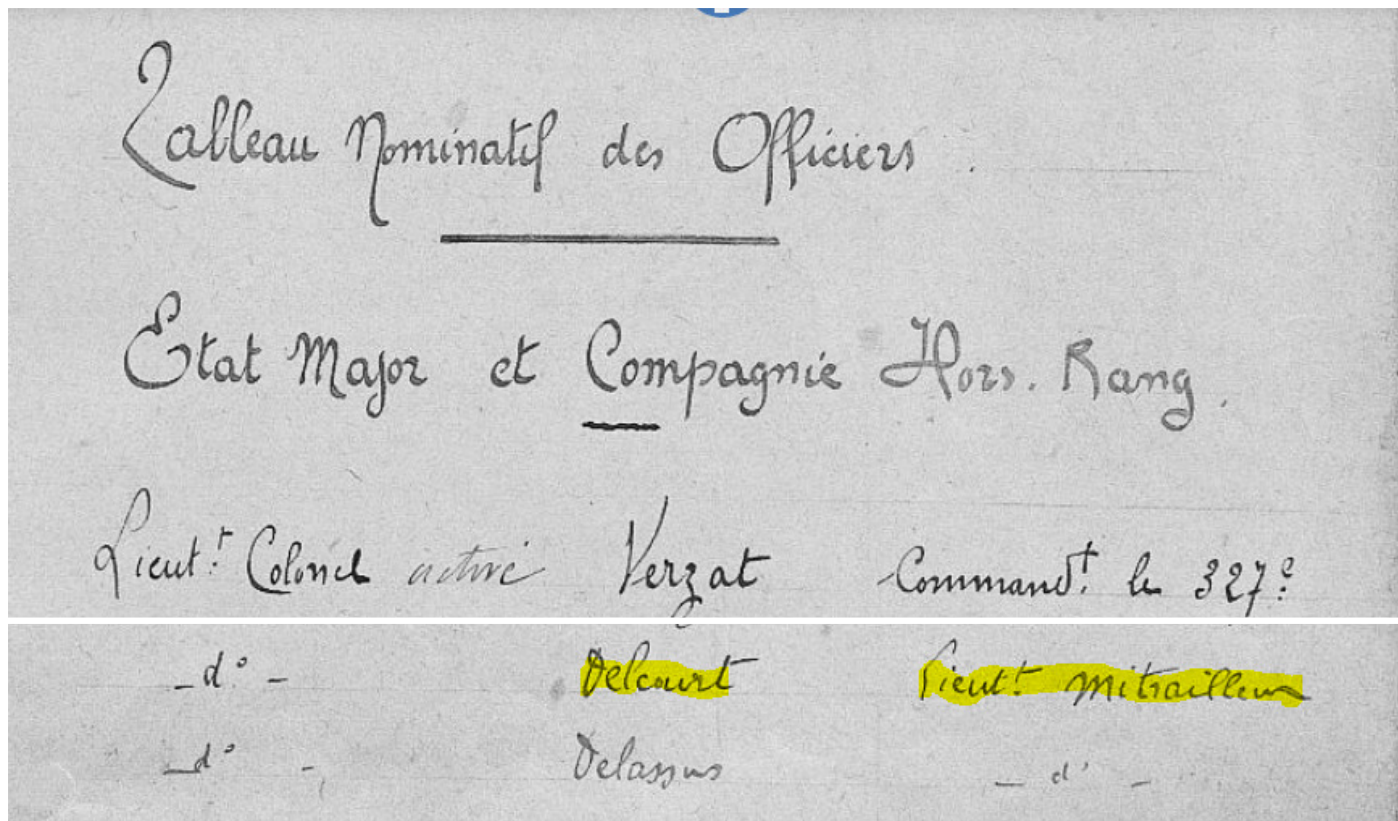 Tableau Nominatif des Officiers.
Etat Major et Compagnie Hors. Rang.
Lieut.t Colonel active Verzat Command.t le 327e
_ d° _ Delcourt Lieut.t Mitrailleur
_ d° _ Delassus _ d° _